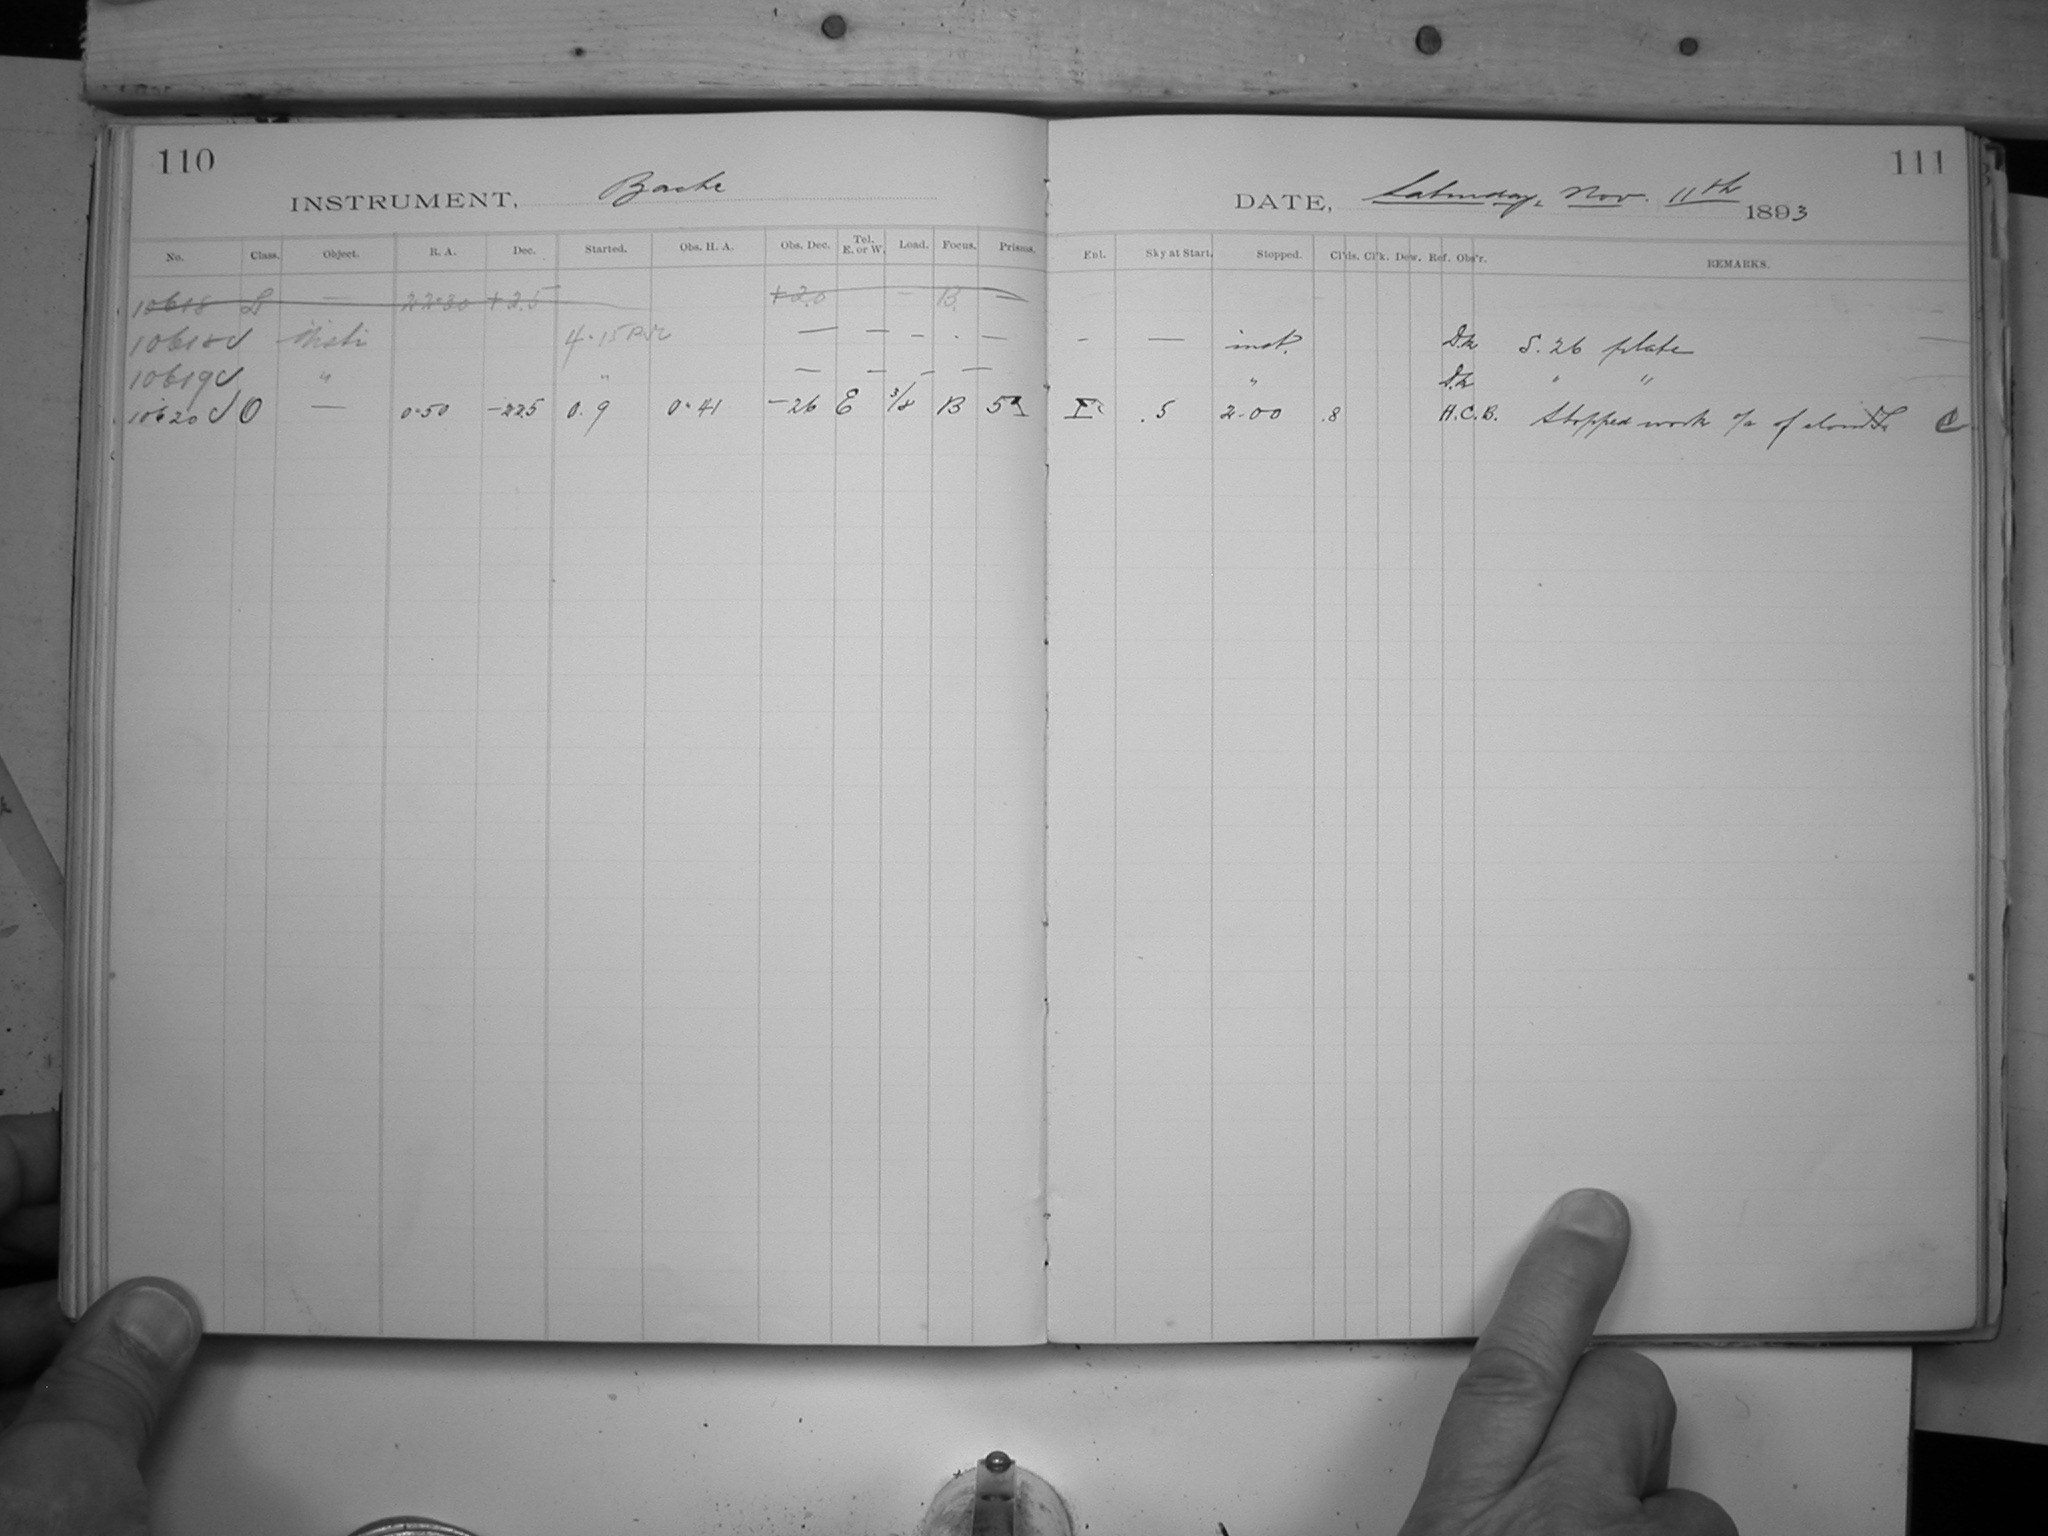 110
INSTRUMENT, Bache
No. Class. Object. R. A. Dec. Started. Obs. H. A. Obs. Dec. Tel. E. or W. Load. Focus. Prisms.
10618 — 22·30 +2.5 +2.0 — B. —
10618 ✓ Misti 4·15 — — — . —
10619 ✓ " " — — — —
10620 ✓ O — 0·50 -22.5 0. 9 0·41 -26 E 3/8 B 5
111
DATE, Saturday, Nov. 11th 1893
Enl. Sky at Start. Stopped. Cl'ds. Cl'k. Dew. Ref. Obs'r. REMARKS.
- — inst. S. 26 plate
" " "
.5 2·00 .8 H.C.B. Stopped work a/c of clouds C